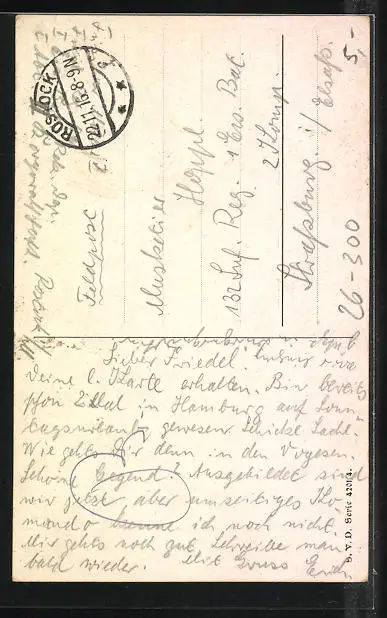 5,-
ROSTOCK
22.11.16.8-9N
Feldpost
Musketier
Höppl.
132 Inf. Reg. 1 Ers. Bat.
2 Komp.
Straßburg i/Elsaß.
26-300
Lieber Friedel!
Deine l. Karte erhalten. Bin bereits
schon 2 Mal in Hamburg auf Sonn
tagsurlaub gewesen Schicke Sache.
Wie gehts Dir denn in den Vogesen.
Schöne Gegend? Ausgebildet sind
wir jetzt, aber umseitiges Ko
mando kenne ich noch nicht.
Mir gehts noch gut. Schreibe man
bald wieder. Mit Gruss Erich
S. V. D. Serie 420/4.